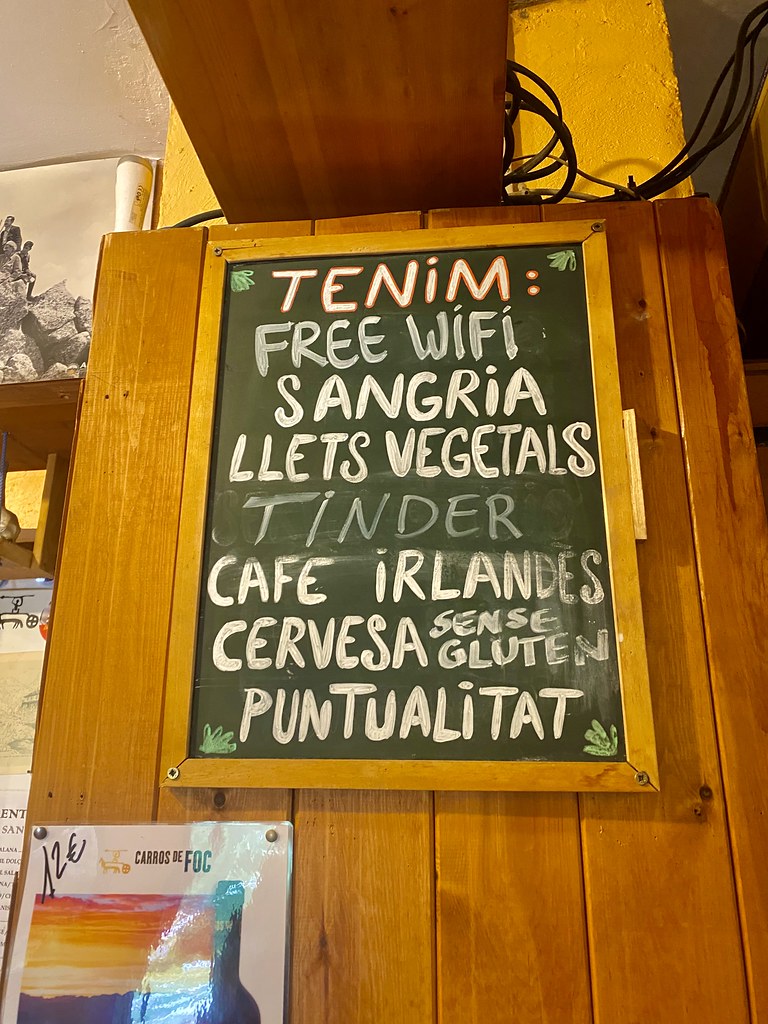 TENiM:
FREE WiFi
SANGRiA
LLETS VEGETALS
TiNDER
CAFE iRLANDES
CERVESA SENSE GLUTEN
PUNTUALiTAT
12€
CARROS DE FOC